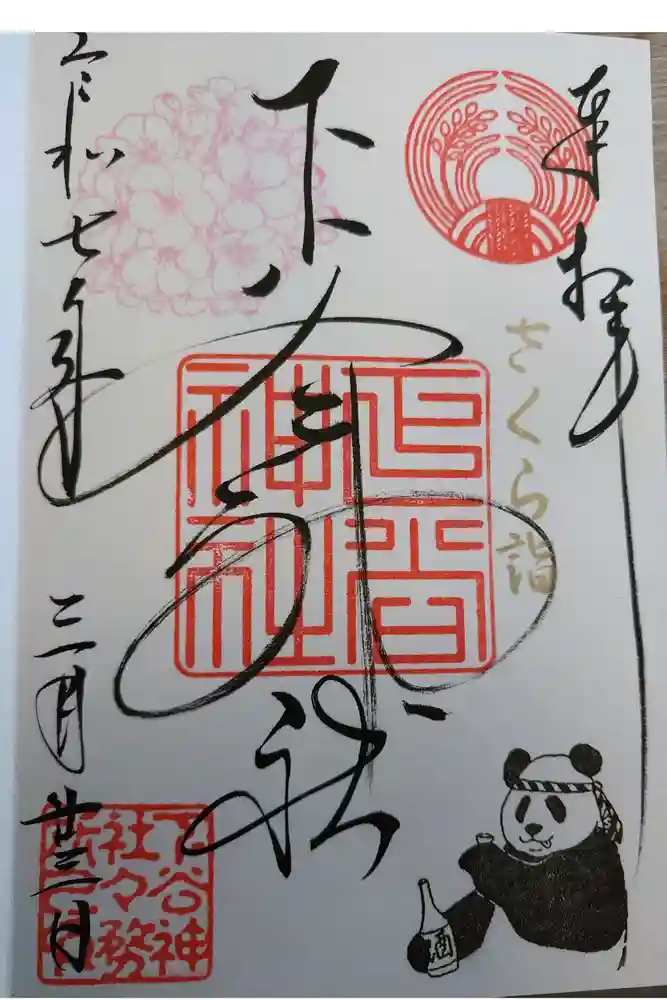 奉拝
さくら詣
下谷神社
下谷
神社
令和七年 三月廿三日
下谷神
社々務
所之印
酒